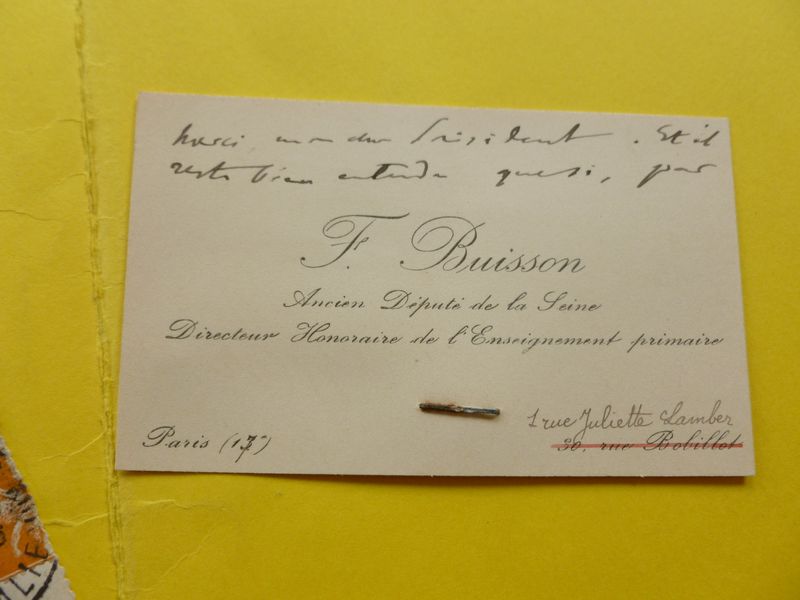 Merci mon cher Président. Et il
reste bien entendu que si, par
F. Buisson
Ancien Député de la Seine
Directeur Honoraire de l'Enseignement primaire
1 rue Juliette Lamber
Paris (17e) 30, rue Bobillot